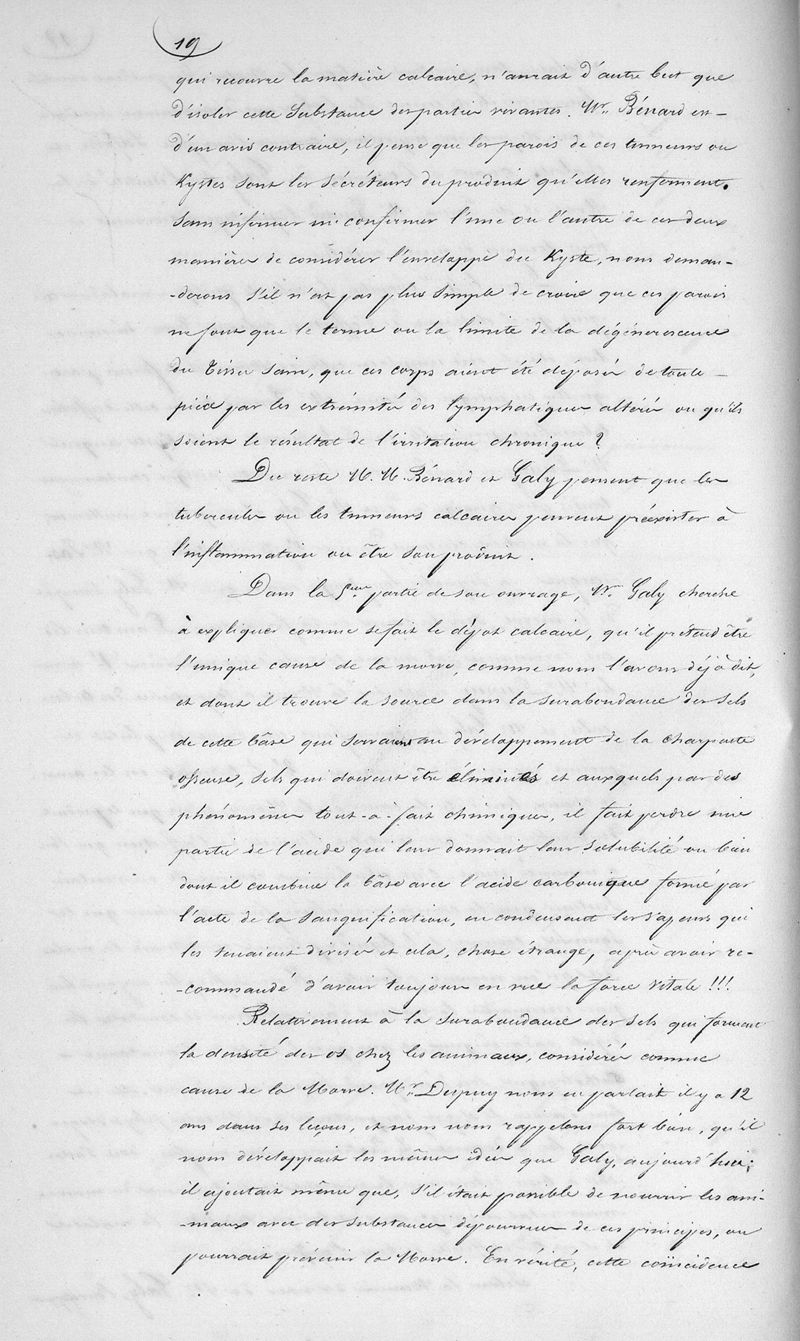 19
qui recouvre la matière calcaire, n'aurait d'autre but que
d'isoler cette substance des parties vivantes. Mr. Bénard est
d'un avis contraire, il pense que les parois de ces tumeurs ou
Kystes sont les sécréteurs du produit qu'elles renferment.
Sans infirmer ni confirmer l'une ou l'autre de ces deux
manières de considérer l'enveloppe du Kyste, nous deman-
-derons s'il n'est pas plus simple de croire que ces parois
ne sont que le terme ou la limite de la dégénérescence
du tissu sain, que ces corps aient été déposés de toute
pièce par les extrémités des lymphatiques altérés ou qu'ils
soient le résultat de l'irritation chronique ?
Du reste M. M. Bénard et Galy pensent que les
tubercules ou les tumeurs calcaires peuvent préexister à
l'inflammation ou être son produit.
Dans la 5eme partie de son ouvrage, Mr Galy cherche
à expliquer comme se fait le dépot calcaire, qu'il prétend être
l'unique cause de la morve, comme nous l'avons déjà dit,
et dont il trouve la source dans la surabondance des sels
de cette bâse qui servaient au développement de la charpente
osseuse, sels qui doivent être éliminés et auxquels par des
phénomènes tout-à-fait chimiques, il fait perdre une
partie de l'acide qui leur donnait leur solubilité ou bien
dont il combine la bâse avec l'acide carbonique formé par
l'acte de la sanguification, en condensant les vapeurs qui
les tenaient divisés et cela, chose étrange, après avoir re-
-commandé d'avoir toujours en vue la force vitale !!!
Relativement à la surabondance des sels qui forment
la densité des os chez les animaux, considérée comme
cause de la Morve. Mr Dupuy nous en parlait il y a 12
ans dans ses leçons, et nous nous rappelons fort bien, qu'il
nous développait les mêmes idées que Galy, aujourd'hui;
il ajoutait même que, s'il était possible de nourrir les ani-
-maux avec des substances dépourvues de ces principes, on
pourrait prévenir la Morve. En vérité, cette coïncidence